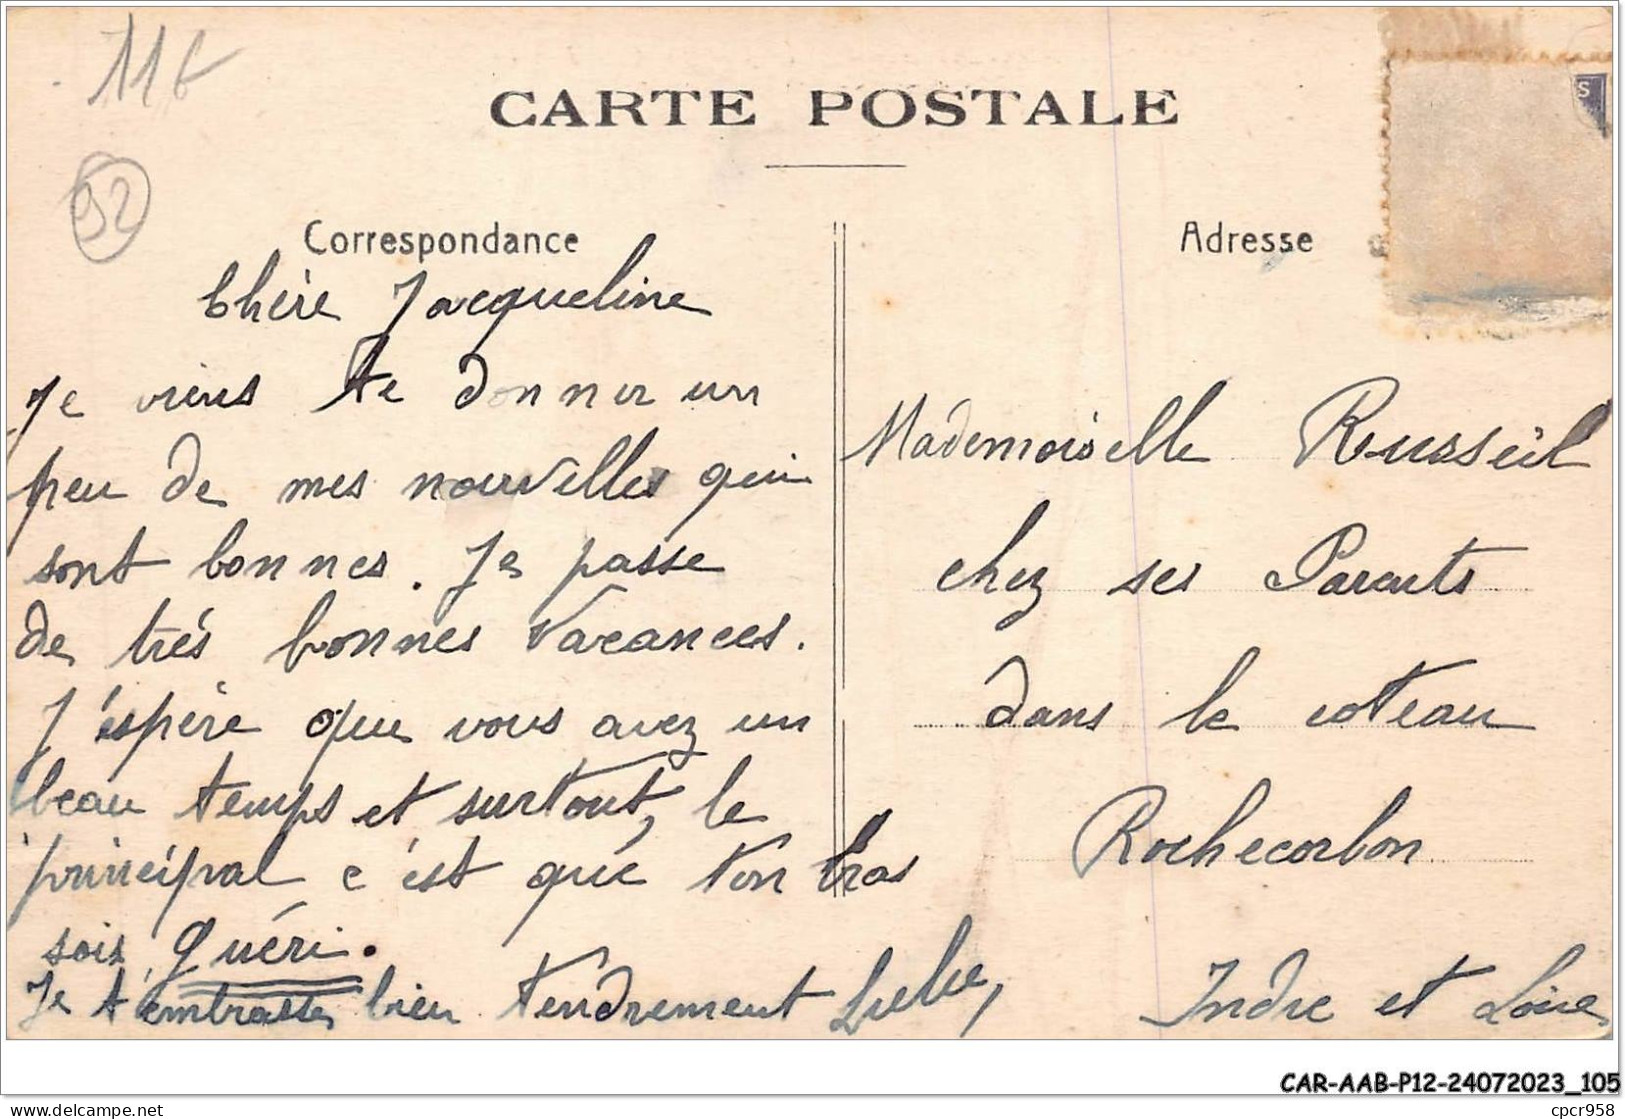 11€
92
CARTE POSTALE
Correspondance
Chère Jacqueline
Je viens te donner un
peu de mes nouvelles qui
sont bonnes. Je passe
de très bonnes vacances.
J'espère que vous avez un
beau temps et surtout, le
principal c'est que ton bras
sois guéri.
Je t'embrasse bien tendrement Lulu,
Adresse
S
Mademoiselle Russeil
chez ses Parents
dans le coteau
Rochecorbon
Indre et Loire
CAR-AAB-P12-24072023_105
delcampe.net
cpcr958